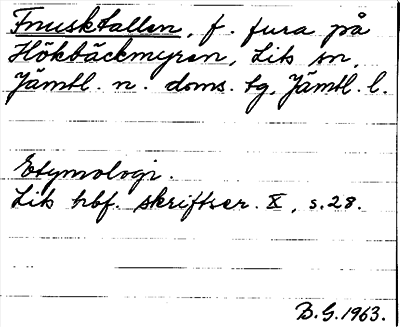 Fnusktallen, f. fura på
Hökbäckmyren, Lits sn,
Jämtl. n. doms. tg, Jämtl. l.
Etymologi.
Lits hbf. skriftser. X, s. 28.
B.G. 1963.